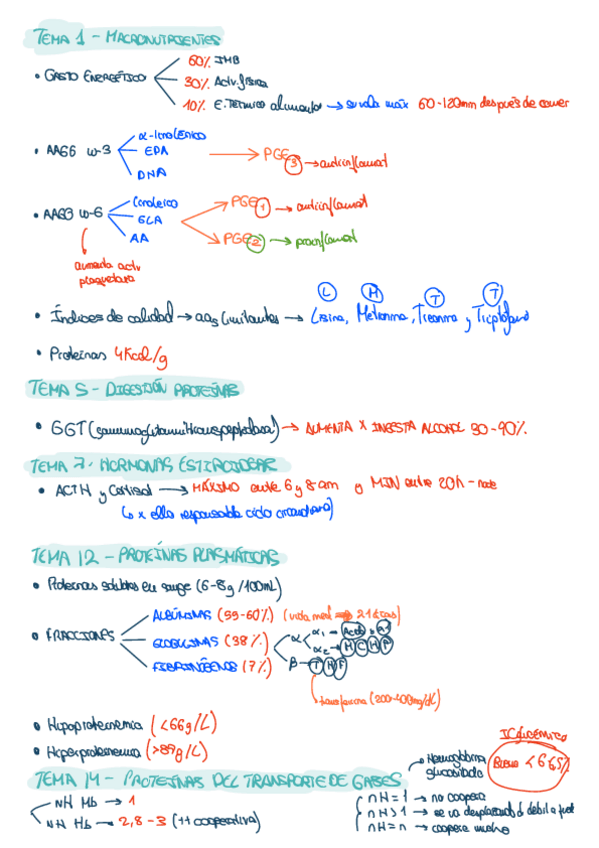 TEMA 1 - MACRONUTRIENTES
60% IMB
• GASTO ENERGÉTICO 30% Activ. física
10% E. Térmico alimentos → su valor máx 60-120min después de comer
α-linolénico
• AAGG ω-3 EPA → PGE 3 → antiinflamat
DNA
Linoleico PGE 1 → antiinflamat
• AAGG ω-6 GLA
AA PGE 2 → proinflamat
aumenta activ
plaquetaria
L M T T
• Índices de calidad → aas limitantes → Lisina, Metionina, Treonina y Triptófano
• Proteínas 4Kcal/g
TEMA 5 - DIGESTIÓN PROTEÍNAS
• GGT (gammaglutamiltranspeptidasa) → AUMENTA X INGESTA ALCOHOL 30-90%
TEMA 7. HORMONAS ESTEROIDEAS
• ACTH y Cortisol → MÁXIMO entre 6 y 8am y MIN entre 20h -
(↳ x ello responsable ciclo circadiano)
TEMA 12 - PROTEÍNAS PLASMÁTICAS
• Proteínas solubles en sangre (6-8g/100mL)
ALBÚMINAS (55-60%) (vida med 21 días)
• FRACCIONES GLOBULINAS (38%) α α1 → α2 → H C H P
FIBRINÓGENOS (7%) β → T H F
transferrina (200-400mg/dL)
• Hipoproteinemia (<66g/L)
• Hiperproteinemia (>89g/L)
IC glicémico
Hemoglobina glucosilada Bueno <6,5%
TEMA 14 - PROTEINAS DEL TRANSPORTE DE GASES
nH Mb → 1
nH Hb → 2,8-3 (++ cooperativa)
nH=1 → no coopera
nH>1 → se va desplazando d débil a fuert
nH=n → coopera mucho